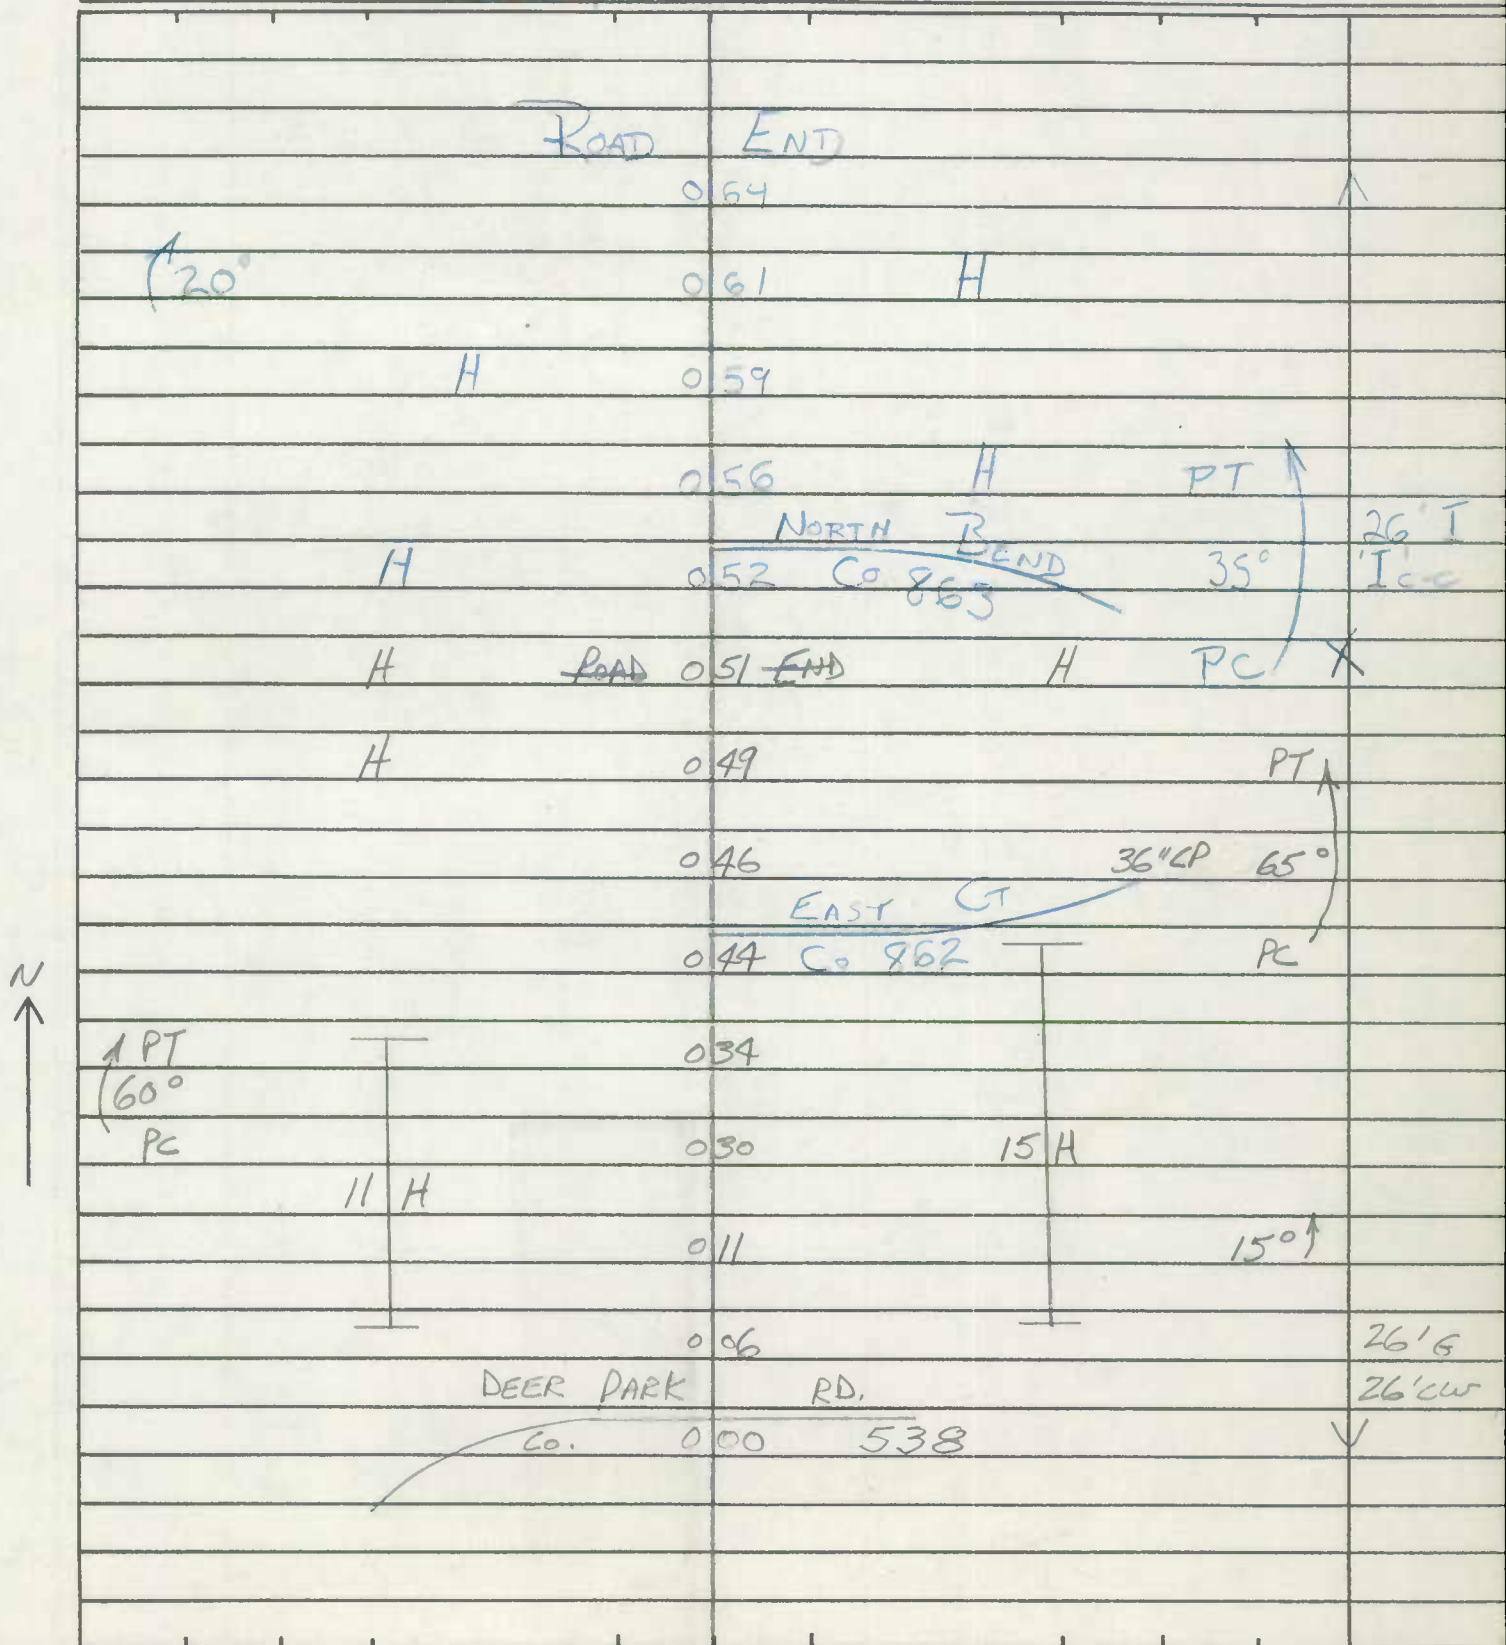 ROAD END
0 64
20° 0 61 H
H 0 59
0 56 H PT
NORTH BEND 26' I
H 0 52 Co 863 35°
H ROAD 0 51 END H PC
H 0 49 PT
0 46 36" CP 65°
EAST CT
0 44 Co 862 PC
N
PT 0 34
60°
PC 0 30 15 H
11 H
0 11 15°
0 06 26' G
DEER PARK RD. 26' CW
Co. 0 00 538